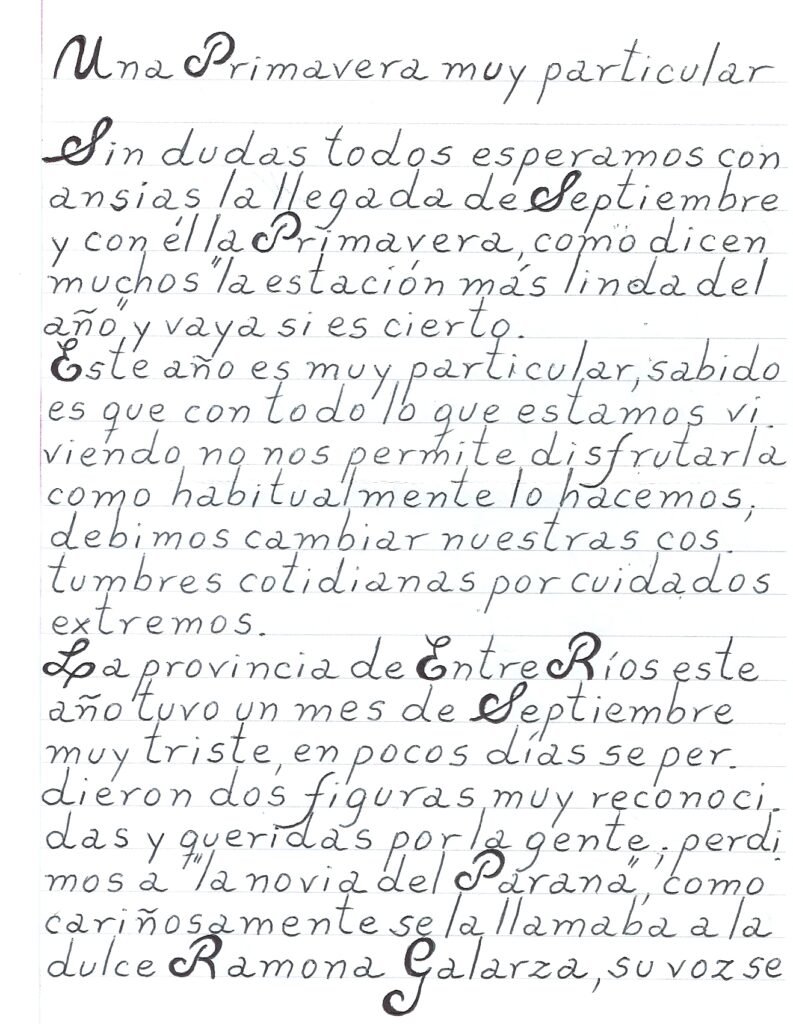 Una Primavera muy particular
Sin dudas todos esperamos con
ansias la llegada de Septiembre
y con él la Primavera, como dicen
muchos "la estación más linda del
año" y vaya si es cierto.
Este año es muy particular, sabido
es que con todo lo que estamos vi-
viendo no nos permite disfrutarla
como habitualmente lo hacemos,
debimos cambiar nuestras cos-
tumbres cotidianas por cuidados
extremos.
La provincia de Entre Ríos este
año tuvo un mes de Septiembre
muy triste, en pocos días se per-
dieron dos figuras muy reconoci-
das y queridas por la gente; perdi
mos a "la novia del Paraná", como
cariñosamente se la llamaba a la
dulce Ramona Galarza, su voz se